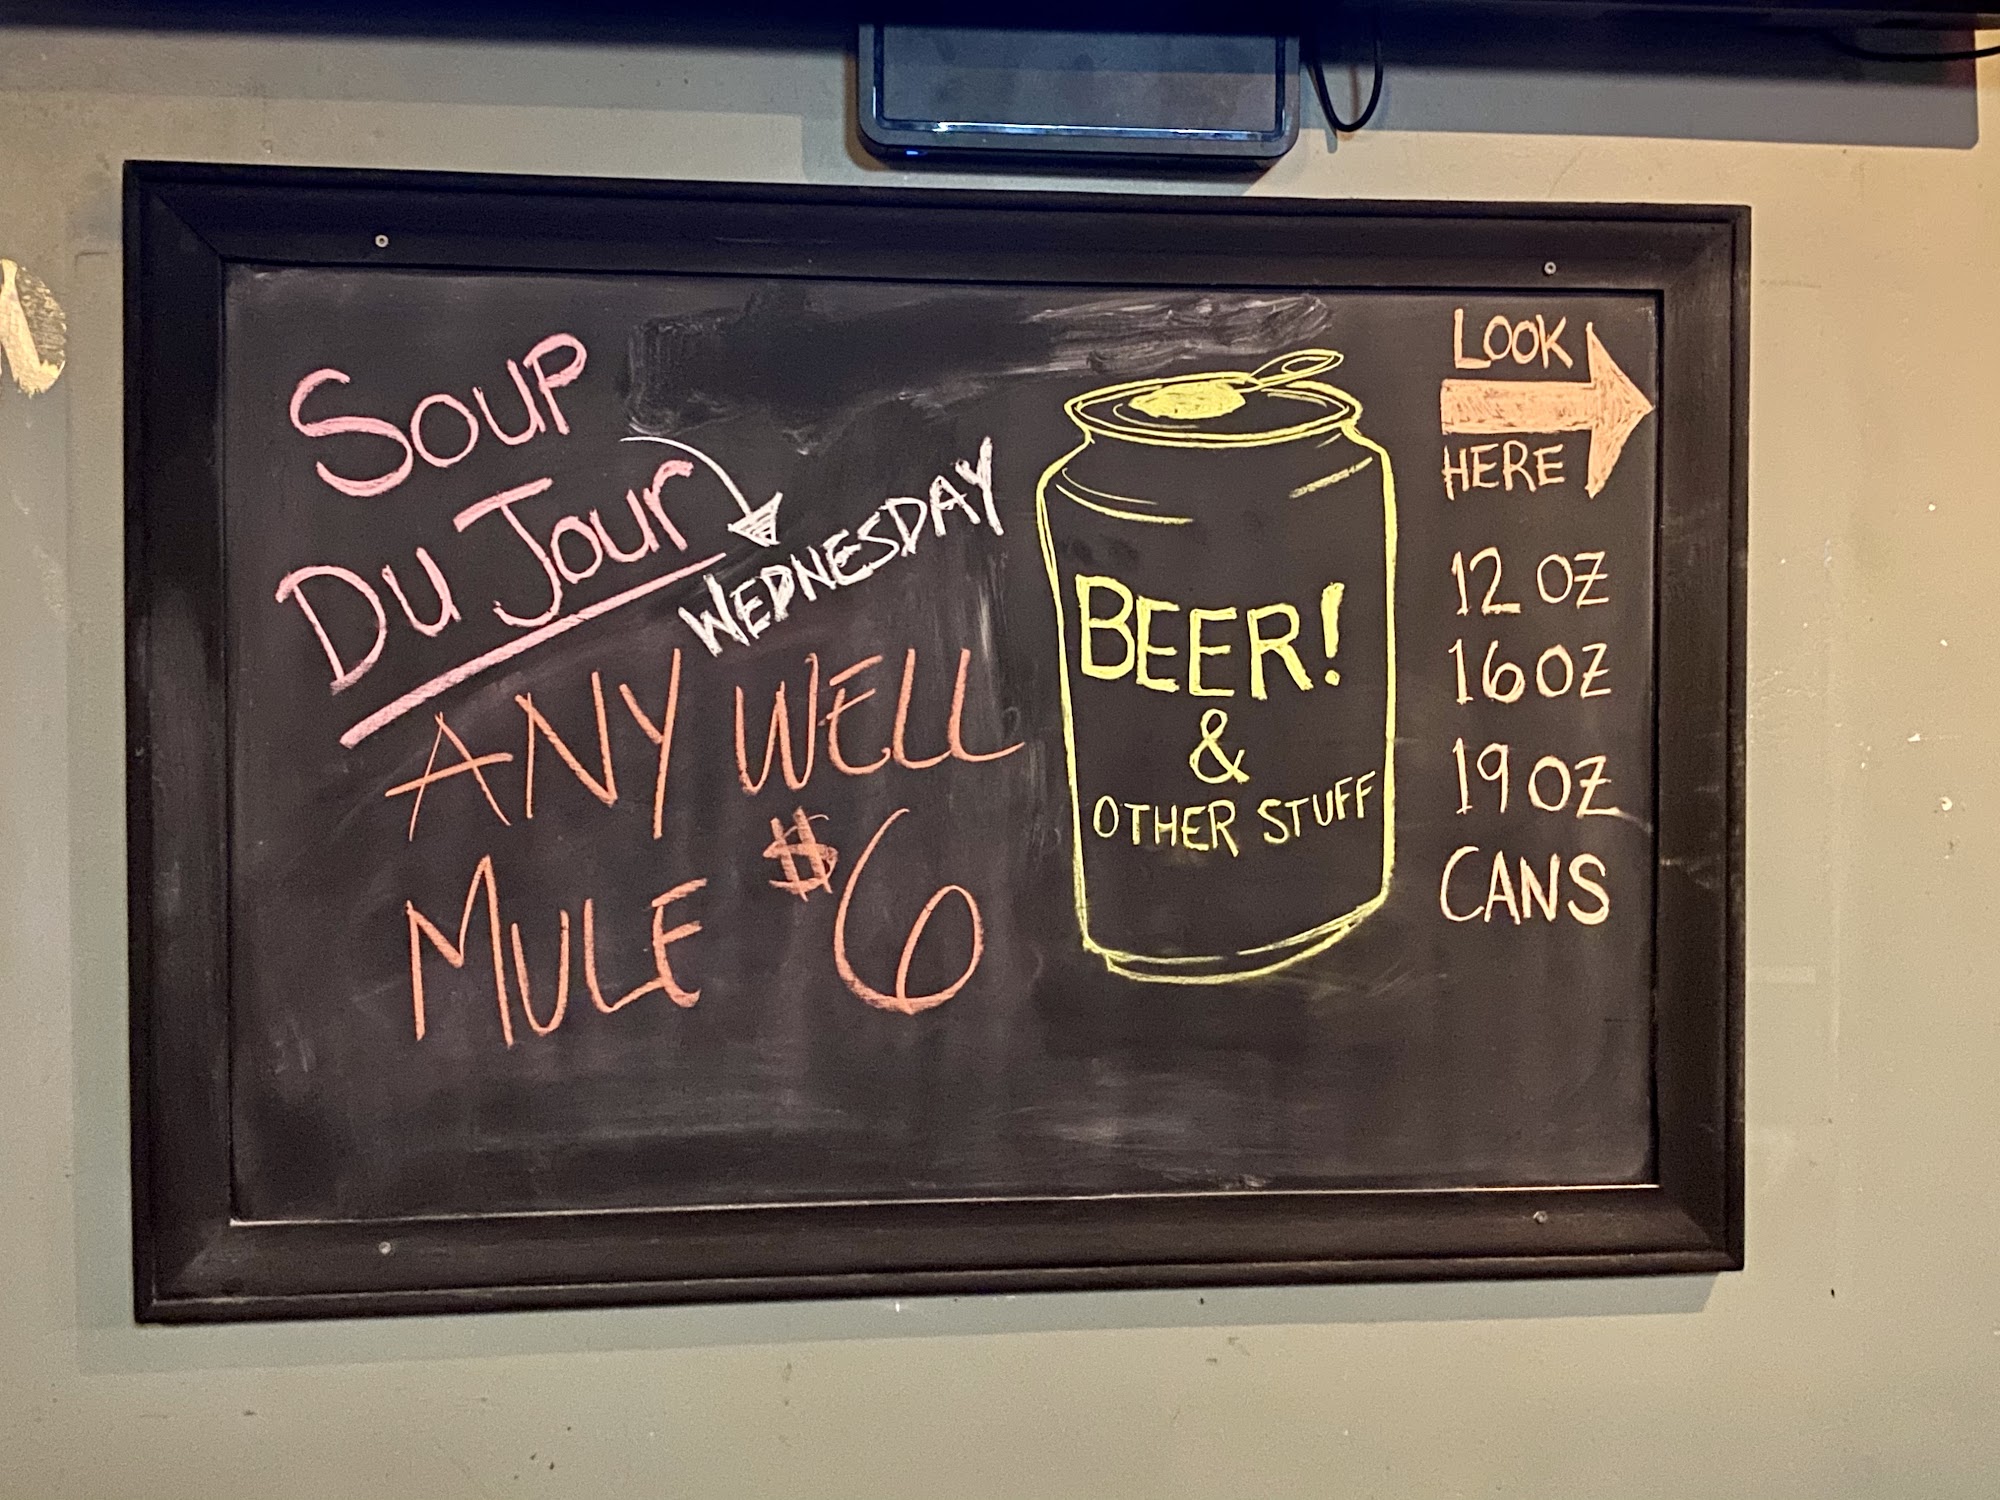 Soup
Du Jour
WEDNESDAY
ANY WELL
MULE $6
BEER!
&
OTHER STUFF
LOOK
HERE
12 OZ
16 OZ
19 OZ
CANS